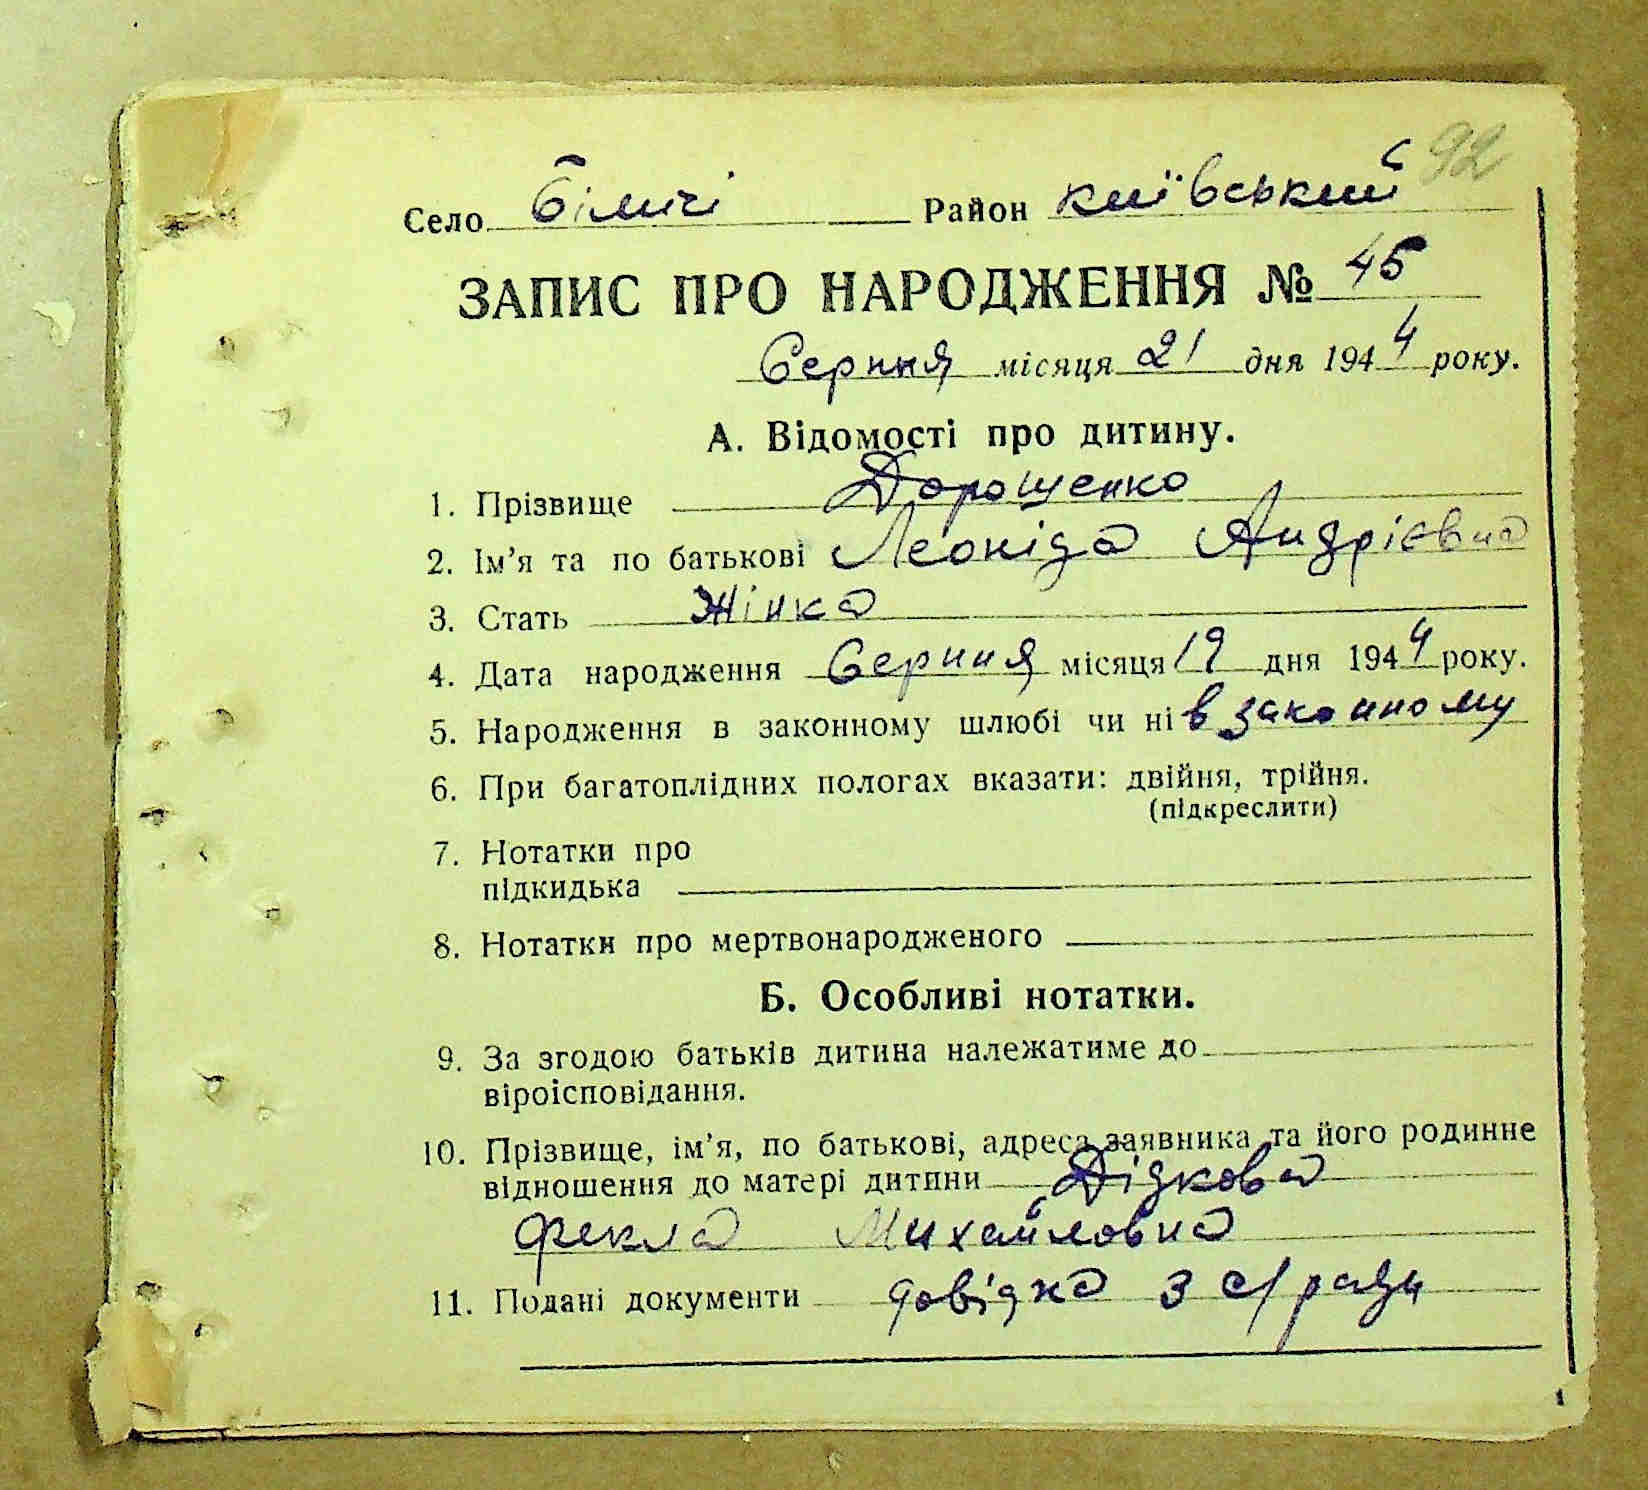 92
Село Біличі Район київський
ЗАПИС ПРО НАРОДЖЕННЯ № 45
Серпня місяця 21 дня 1944 року.
А. Відомості про дитину.
1. Прізвище Дорошенко
2. Ім'я та по батькові Леоніда Андрієвна
3. Стать Жінка
4. Дата народження Серпня місяця 19 дня 1944 року.
5. Народження в законному шлюбі чи ні в законному
6. При багатоплідних пологах вказати: двійня, трійня.
(підкреслити)
7. Нотатки про
підкидька
8. Нотатки про мертвонародженого
Б. Особливі нотатки.
9. За згодою батьків дитина належатиме до
віроісповідання.
10. Прізвище, ім'я, по батькові, адреса заявника та його родинне
відношення до матері дитини Дідкова
Фекла Михайловна
11. Подані документи довідка з с/ради